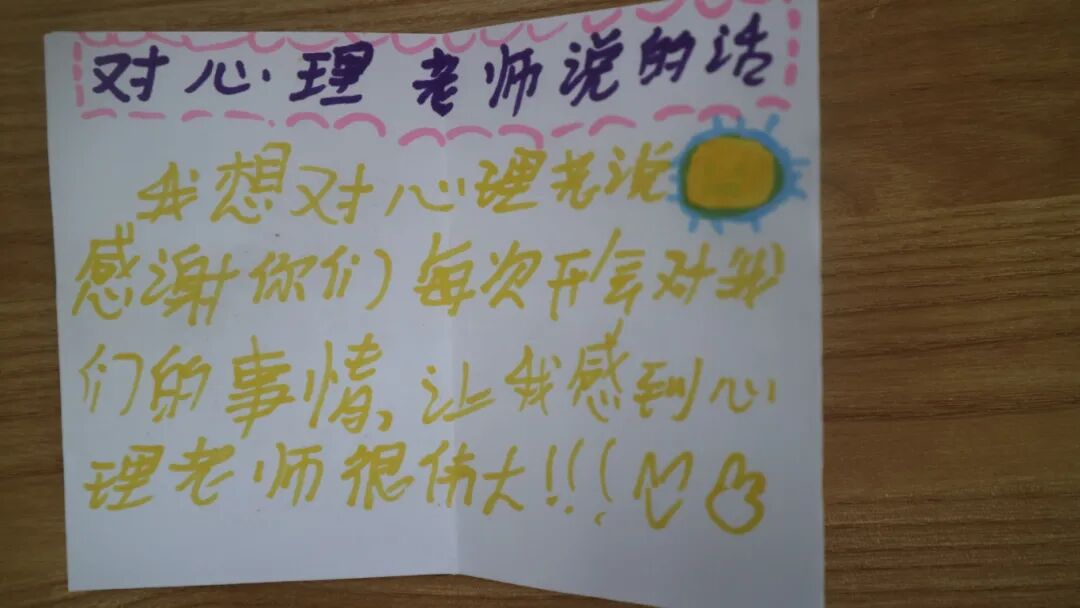 对心理老师说的话
我想对心理老说
感谢你们每次开会对我
们的事情,让我感到心
理老师很伟大!!!